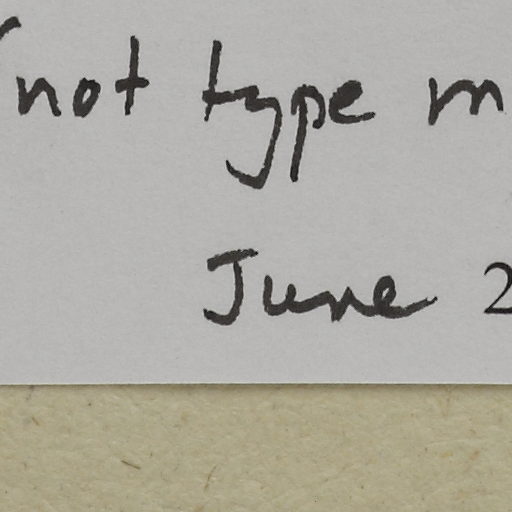 (not type m
June 2